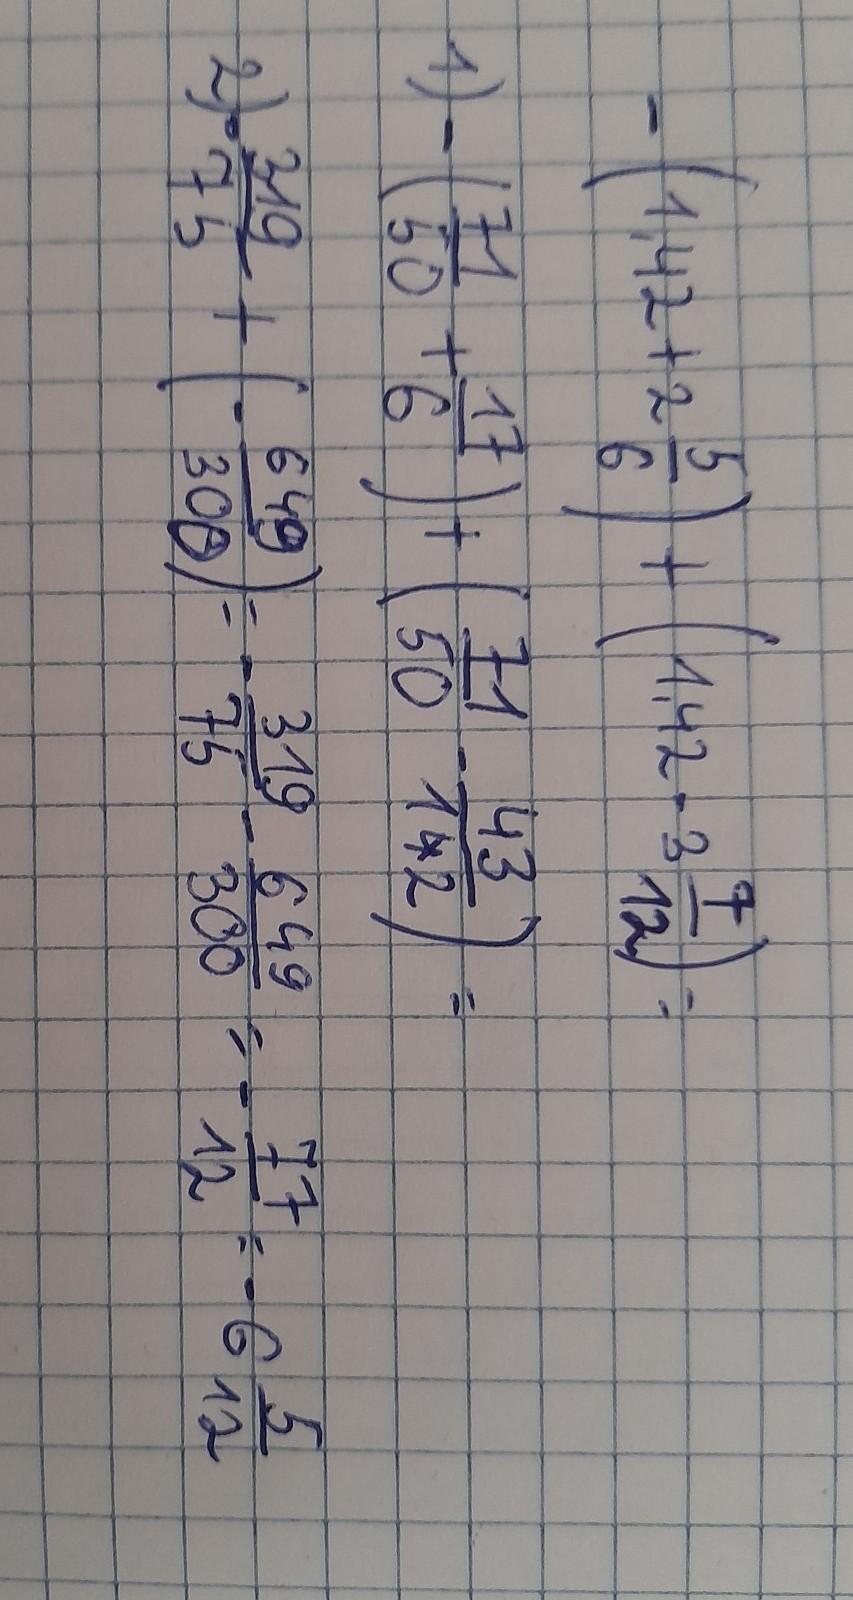 - (1,42 + 2 5/6) + (1,42 - 3 7/12) =
1) - (71/50 + 17/6) + (71/50 - 43/12) =
2) - 319/75 + (- 649/300) = - 319/75 - 649/300 = - 77/12 = - 6 5/12